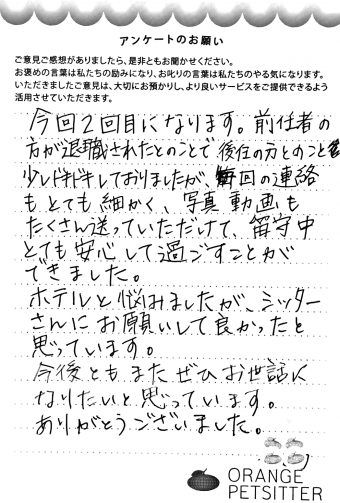 アンケートのお願い
ご意見ご感想がありましたら、是非ともお聞かせください。
お褒めの言葉は私たちの励みになり、お叱りの言葉は私たちのやる気になります。
いただきましたご意見は、大切にお預かりし、より良いサービスをご提供できるよう
活用させていただきます。
今回2回目になります。前任者の
方が退職されたとのことで後任の方とのこと
少しドキドキしておりましたが、毎回の連絡
もとても細かく、写真動画も
たくさん送っていただけて、留守中
とても安心して過ごすことが
できました。
ホテルと悩みましたが、シッター
さんにお願いして良かったと
思っています。
今後ともまたぜひお世話に
なりたいと思っています。
ありがとうございました。
ORANGE
PETSITTER